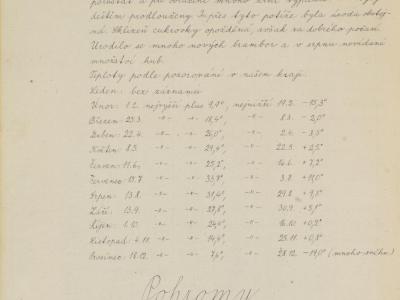 deštěm prodlouženy. I přes tyto potíže byla úroda obstoj-
ná. Sklizeň cukrovky opožděná, avšak za dobrého počasí.
Urodilo se mnoho nových brambor a v srpnu nevídané
množství hub.
Teploty podle pozorování v našem kraji.
Leden: bez záznamů
Únor: 1.2. nejvyšší plus 9,9°, nejnižší 19.2. -15,3°
Březen: 25.3. -"- -"- 18,4°, -"- 8.3. - 2,0°
Duben: 22.4. -"- -"- 26,0°, -"- 2.4. - 3,5°
Květen: 8.5. -"- -"- 29,4°, -"- 22.5. + 2,5°
Červen: 11.6. -"- -"- 25,2°, -"- 14.6. + 7,2°
Červenec: 13.7. -"- -"- 33,7°, -"- 3.8. + 11,0°
Srpen: 13.8. -"- -"- 31,4°, -"- 29.8. + 9,5°
Září: 13.9. -"- -"- 27,8°, -"- 30.9. + 5,1°
Říjen: 1.10. -"- -"- 24,0°, -"- 16.10. + 0,2°
Listopad: 4.11. -"- -"- 14,4°, -"- 25.11. + 0,8°
Prosinec: 18.12. -"- -"- 7,6°, -"- 28.12. -19,0° (mnoho sněhu)
Pohromy